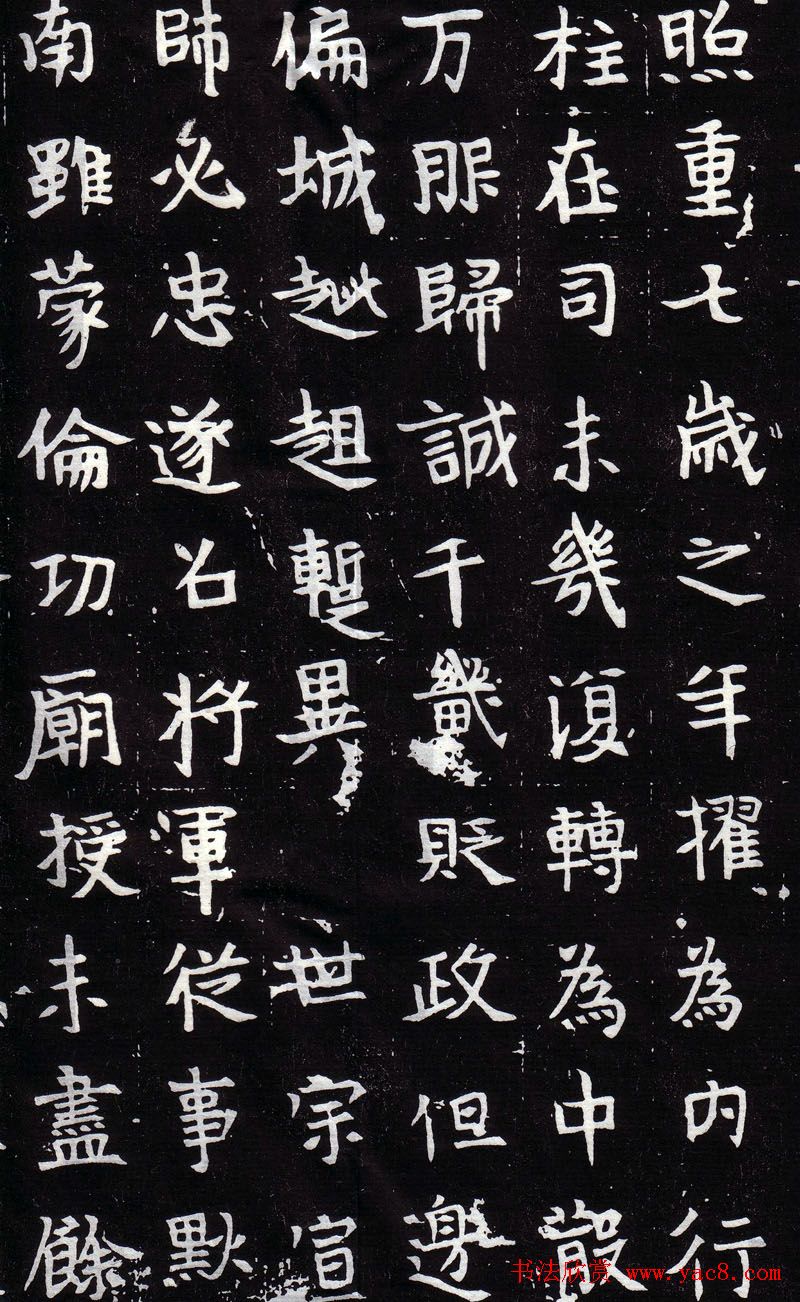 照重七歲之年擢為內行
柱在司未幾復轉為中散
万服歸誠千畿貶政但邊
偏城趑趄暫異 世宗宣
師必忠遂召將渾從事默
南雖蒙倫功廟授未盡餘
书法欣赏 www.yac8.com